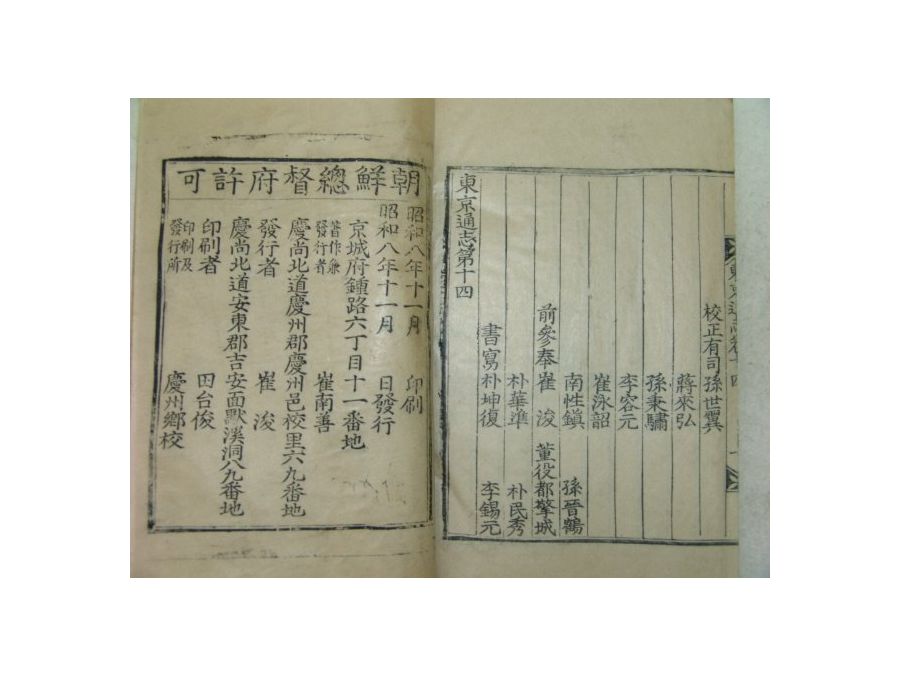 校正有司 孫世翼
蔣來弘
孫秉驌
李容元
崔泳韶
南性鎭 孫晉鶴
前參奉 崔浚 董役都擎城
朴華準 朴民秀
書寫 朴坤復 李錫元
東京通志第十四
朝鮮總督府許可
昭和八年十一月 印刷
昭和八年十一月 日發行
京城府鍾路六丁目十一番地
著作兼發行者 崔南善
慶尚北道慶州郡慶州邑校里六九番地
發行者 崔浚
慶尚北道安東郡吉安面默溪洞八九番地
印刷者 田台俊
印刷及發行所 慶州鄉校